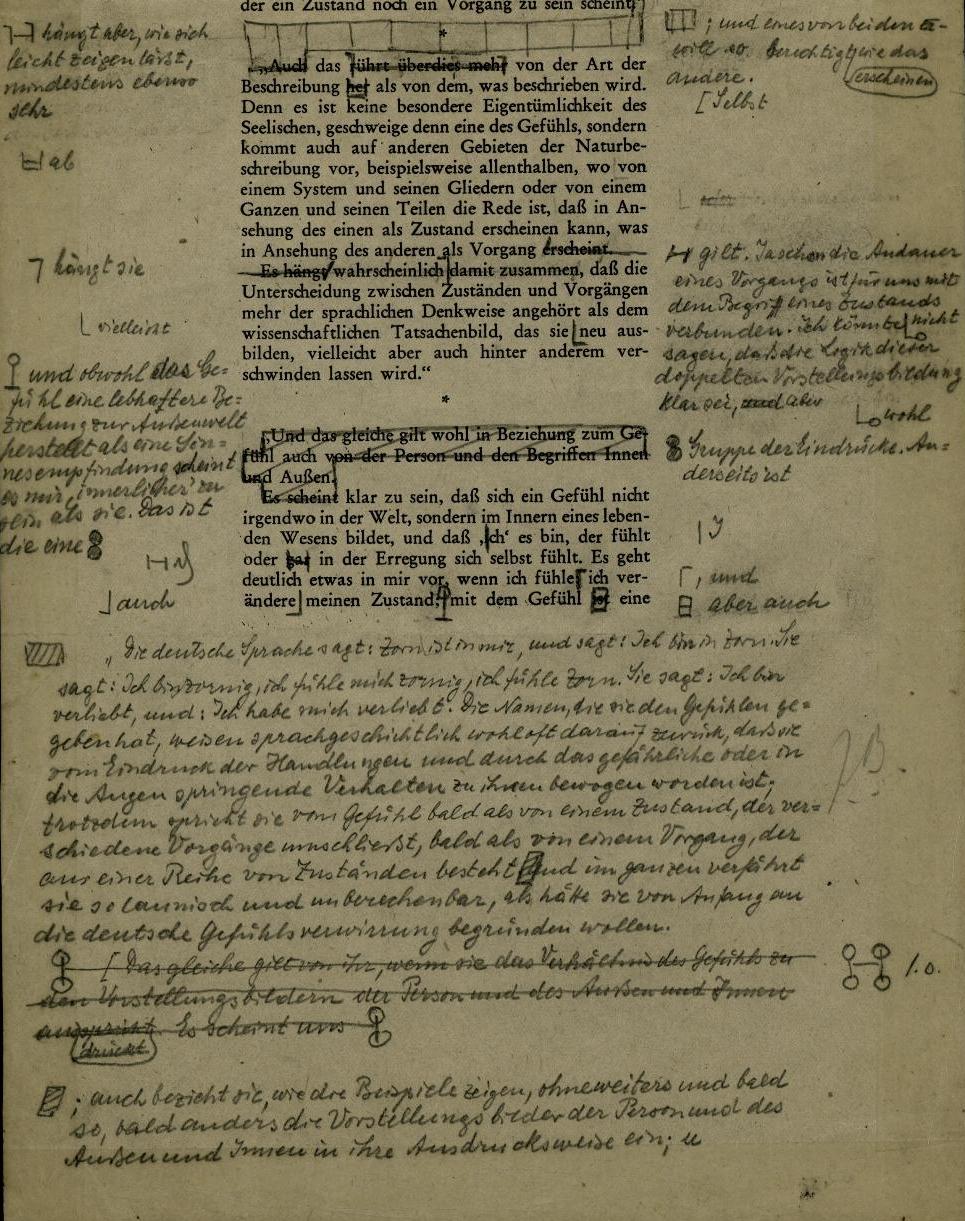 der ein Zustand noch ein Vorgang zu sein scheint.
*
„Auch das führt überdies mehr von der Art der
Beschreibung her als von dem, was beschrieben wird.
Denn es ist keine besondere Eigentümlichkeit des
Seelischen, geschweige denn eine des Gefühls, sondern
kommt auch auf anderen Gebieten der Naturbe-
schreibung vor, beispielsweise allenthalben, wo von
einem System und seinen Gliedern oder von einem
Ganzen und seinen Teilen die Rede ist, daß in An-
sehung des einen als Zustand erscheinen kann, was
in Ansehung des anderen als Vorgang erscheint.
Es hängt wahrscheinlich damit zusammen, daß die
Unterscheidung zwischen Zuständen und Vorgängen
mehr der sprachlichen Denkweise angehört als dem
wissenschaftlichen Tatsachenbild, das sie neu aus-
bilden, vielleicht aber auch hinter anderem ver-
schwinden lassen wird.“
*
„Und das gleiche gilt wohl in Beziehung zum Ge-
fühl auch von der Person und den Begriffen Innen
und Außen.
Es scheint klar zu sein, daß sich ein Gefühl nicht
irgendwo in der Welt, sondern im Innern eines leben-
den Wesens bildet, und daß ‚ich‘ es bin, der fühlt
oder hat in der Erregung sich selbst fühlt. Es geht
deutlich etwas in mir vor, wenn ich fühle ich ver-
ändere meinen Zustand; mit dem Gefühl ist eine
hängt aber, wie sich
leicht zeigen lässt,
mindestens ebenso
sehr
ab
hängt sie
vielleicht
und obwohl das Ge=
fühl eine lebhaftere Be=
ziehung zur Außenwelt
herstellt als eine Sin=
nesempfindung, scheint
es mir ‚innerlicher‘ zu
sein als sie. Das ist
die eine
auch
; und eines von beiden
so berechtigt wie das
andere. erscheinen
[Selbst
gilt. Ja schon die Andauer
eines Vorgangs ist für uns mit
dem Begriff eines Zustands
verbunden. Ich könnte nicht
sagen, daß die Logik dieser
doppelten Vorstellungsbildung
klar sei, und aber
wohl
Gruppe der Eindrücke. An=
derseits ist
J
, und
aber auch
„Die deutsche Sprache sagt: Zorn ist in mir, und sagt: Ich bin in Zorn. Sie
sagt: Ich bin zornig, ich fühle mich zornig, ich fühle Zorn. Sie sagt: Ich bin
verliebt, und: Ich habe mich verliebt. Die Namen, die sie den Gefühlen ge=
geben hat, weisen sprachgeschichtlich wohl oft darauf zurück, daß sie
vom Eindruck der Handlungen und durch das gefährliche oder in
die Augen springende Verhalten zu ihnen bewogen worden ist;
trotzdem spricht sie vom Gefühl bald als von einem Zustand, der ver=
schiedene Vorgänge umschließt, bald als von einem Vorgang, der
aus einer Reihe von Zuständen besteht und im ganzen verfährt
sie so launisch und unberechenbar, als hätte sie von Anfang an
die deutsche Gefühlsverwirrung begründen wollen.
[Das gleiche gilt von ihr, wenn sie das Verhältnis des Gefühls zu
den Vorstellungsbildern der Person und des Außen und Innen
ausspricht. Es scheint uns
drückt
; auch bezieht sie, wie die Beispiele zeigen, ohneweiters und bald
so, bald anders die Vorstellungsbilder der Person und des
Außen und Innen in ihre Ausdrucksweise ein; u